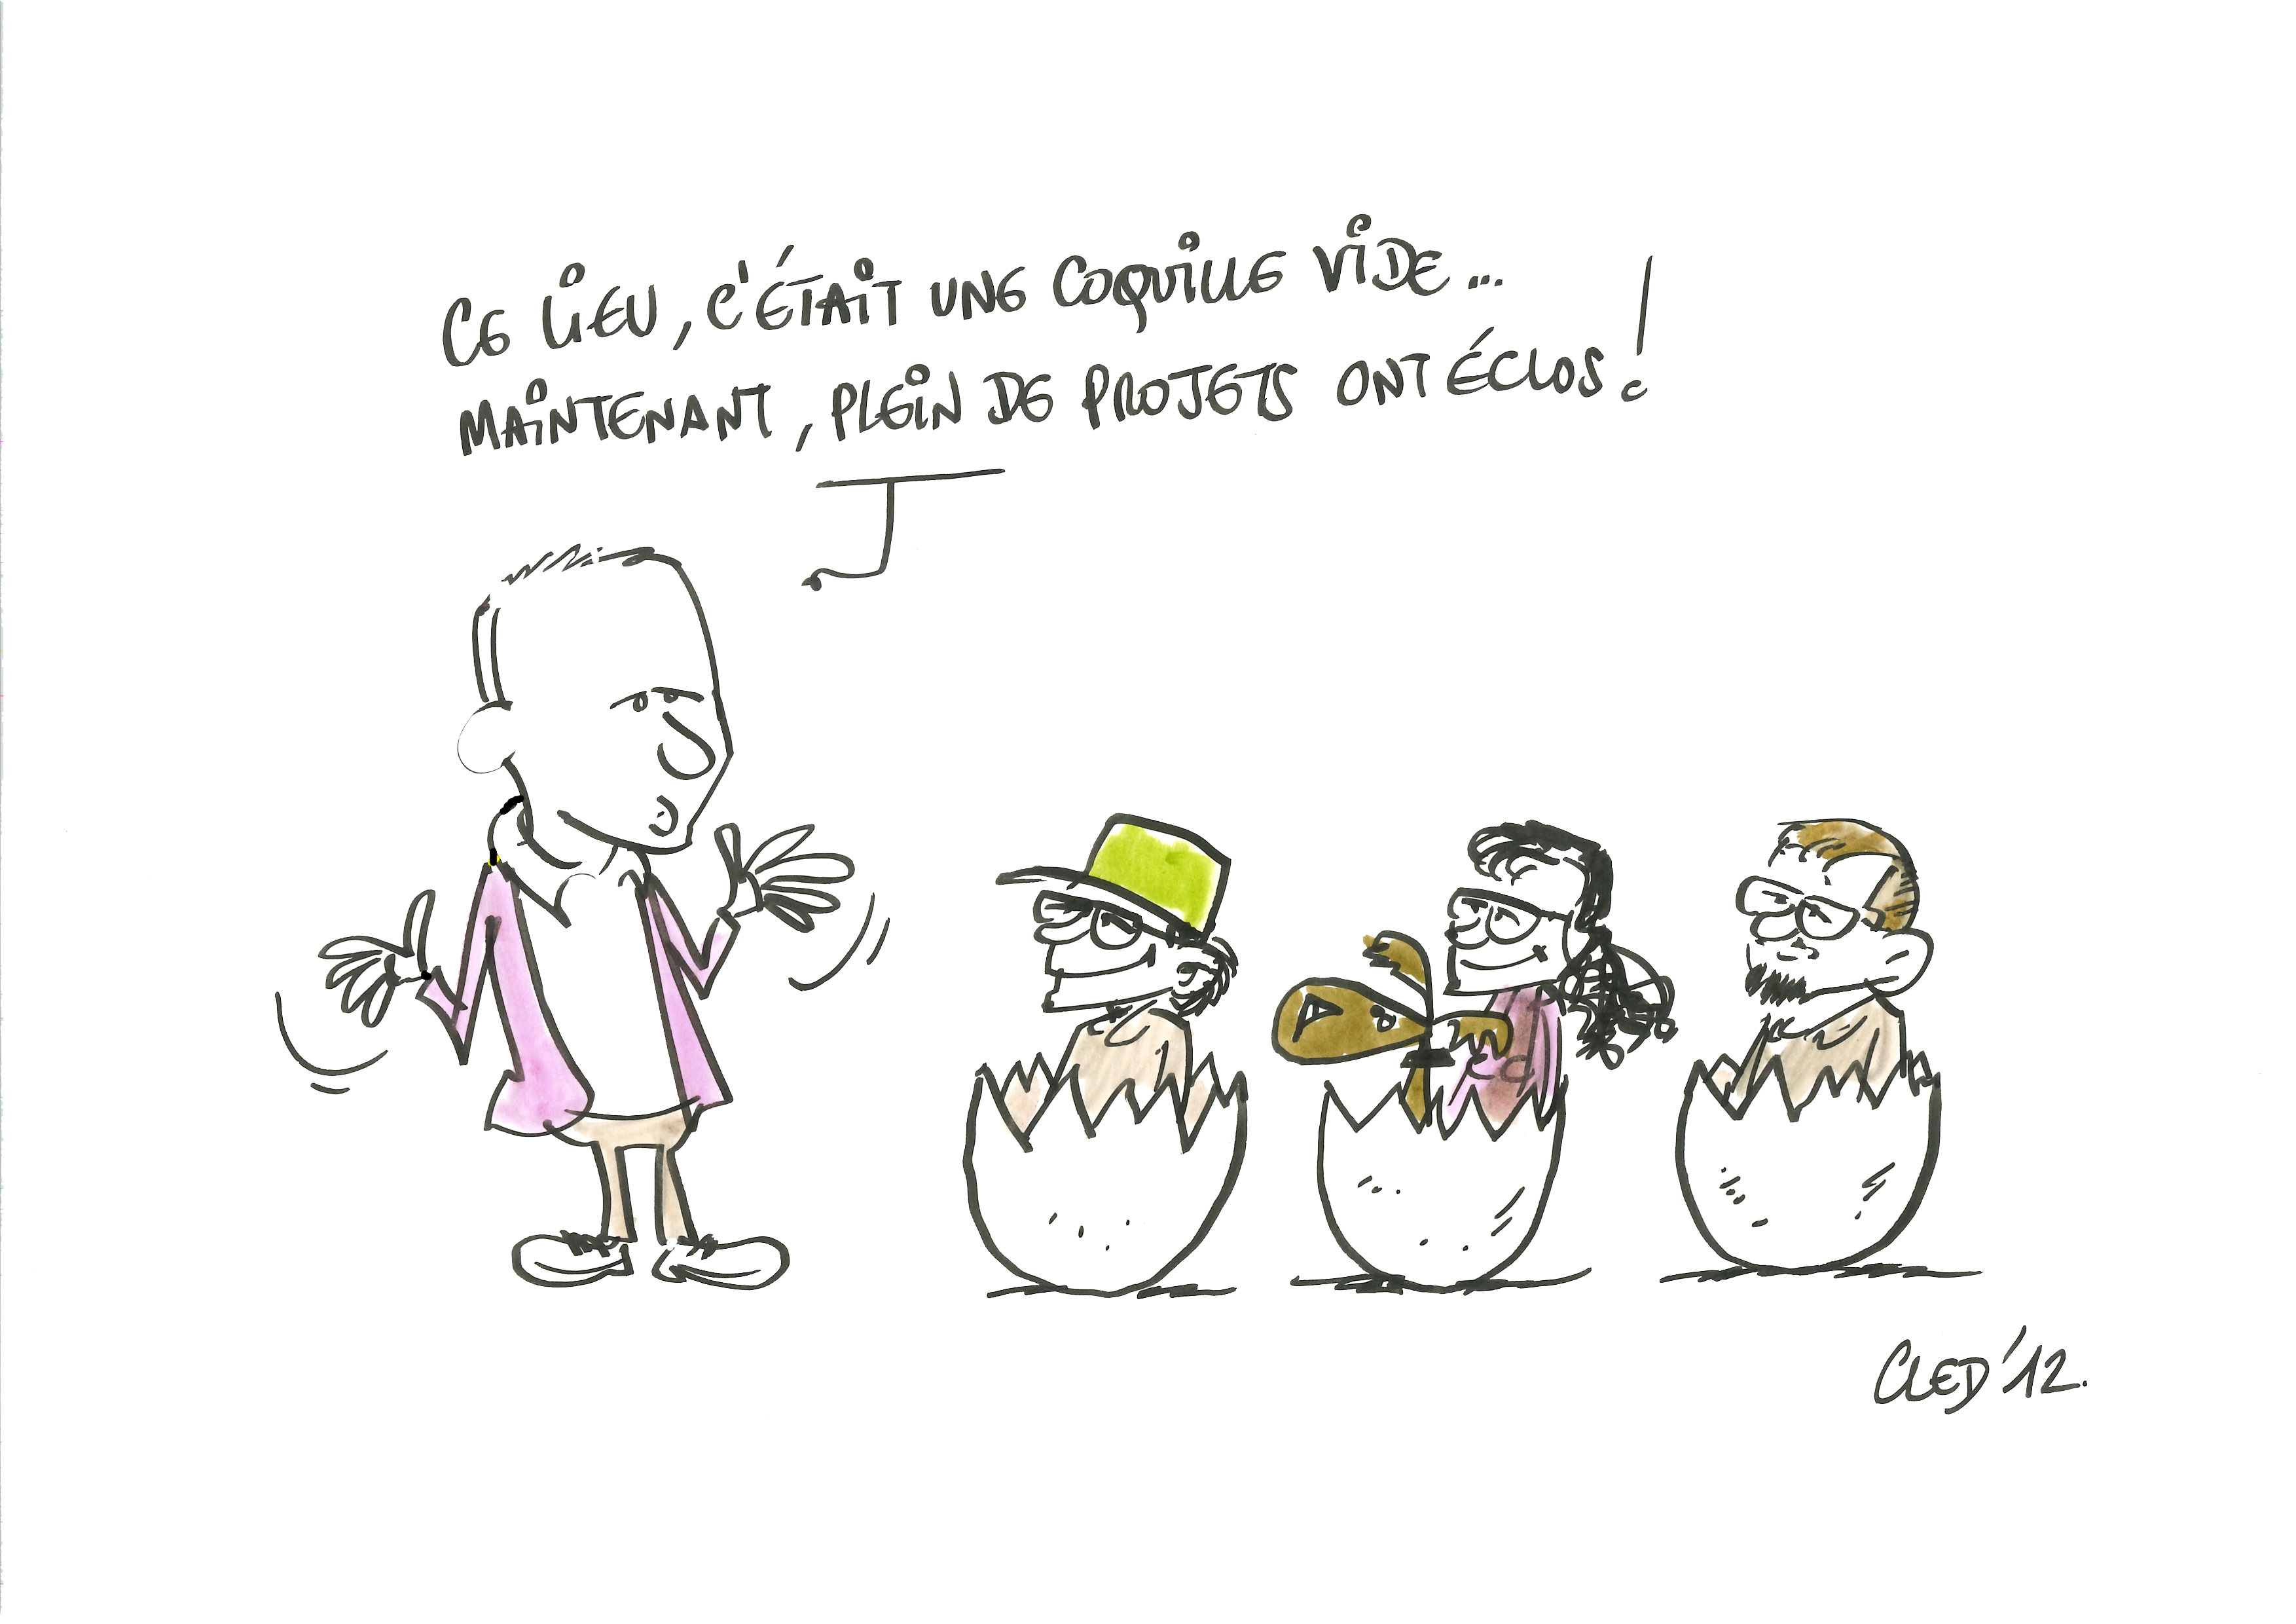 CE LIEU, C'ÉTAIT UNE COQUILLE VIDE...
MAINTENANT, PLEIN DE PROJETS ONT ÉCLOS!
CLED'12.